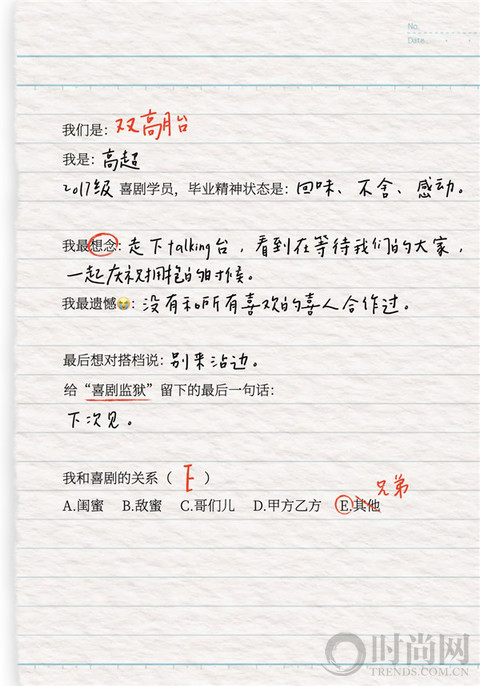 No.
Date.
我们是：双高胎
我是：高超
2017级 喜剧学员，毕业精神状态是：回味、不舍、感动。
我最想念：走下talking台，看到在等待我们的大家，
一起庆祝拥抱的时候。
我最遗憾😭：没有和所有喜欢的喜人合作过。
最后想对搭档说：别来沾边。
给“喜剧监狱”留下的最后一句话：
下次见。
我和喜剧的关系（ E ）
兄弟
A.闺蜜 B.敌蜜 C.哥们儿 D.甲方乙方 E.其他
时尚网
TRENDS.COM.CN